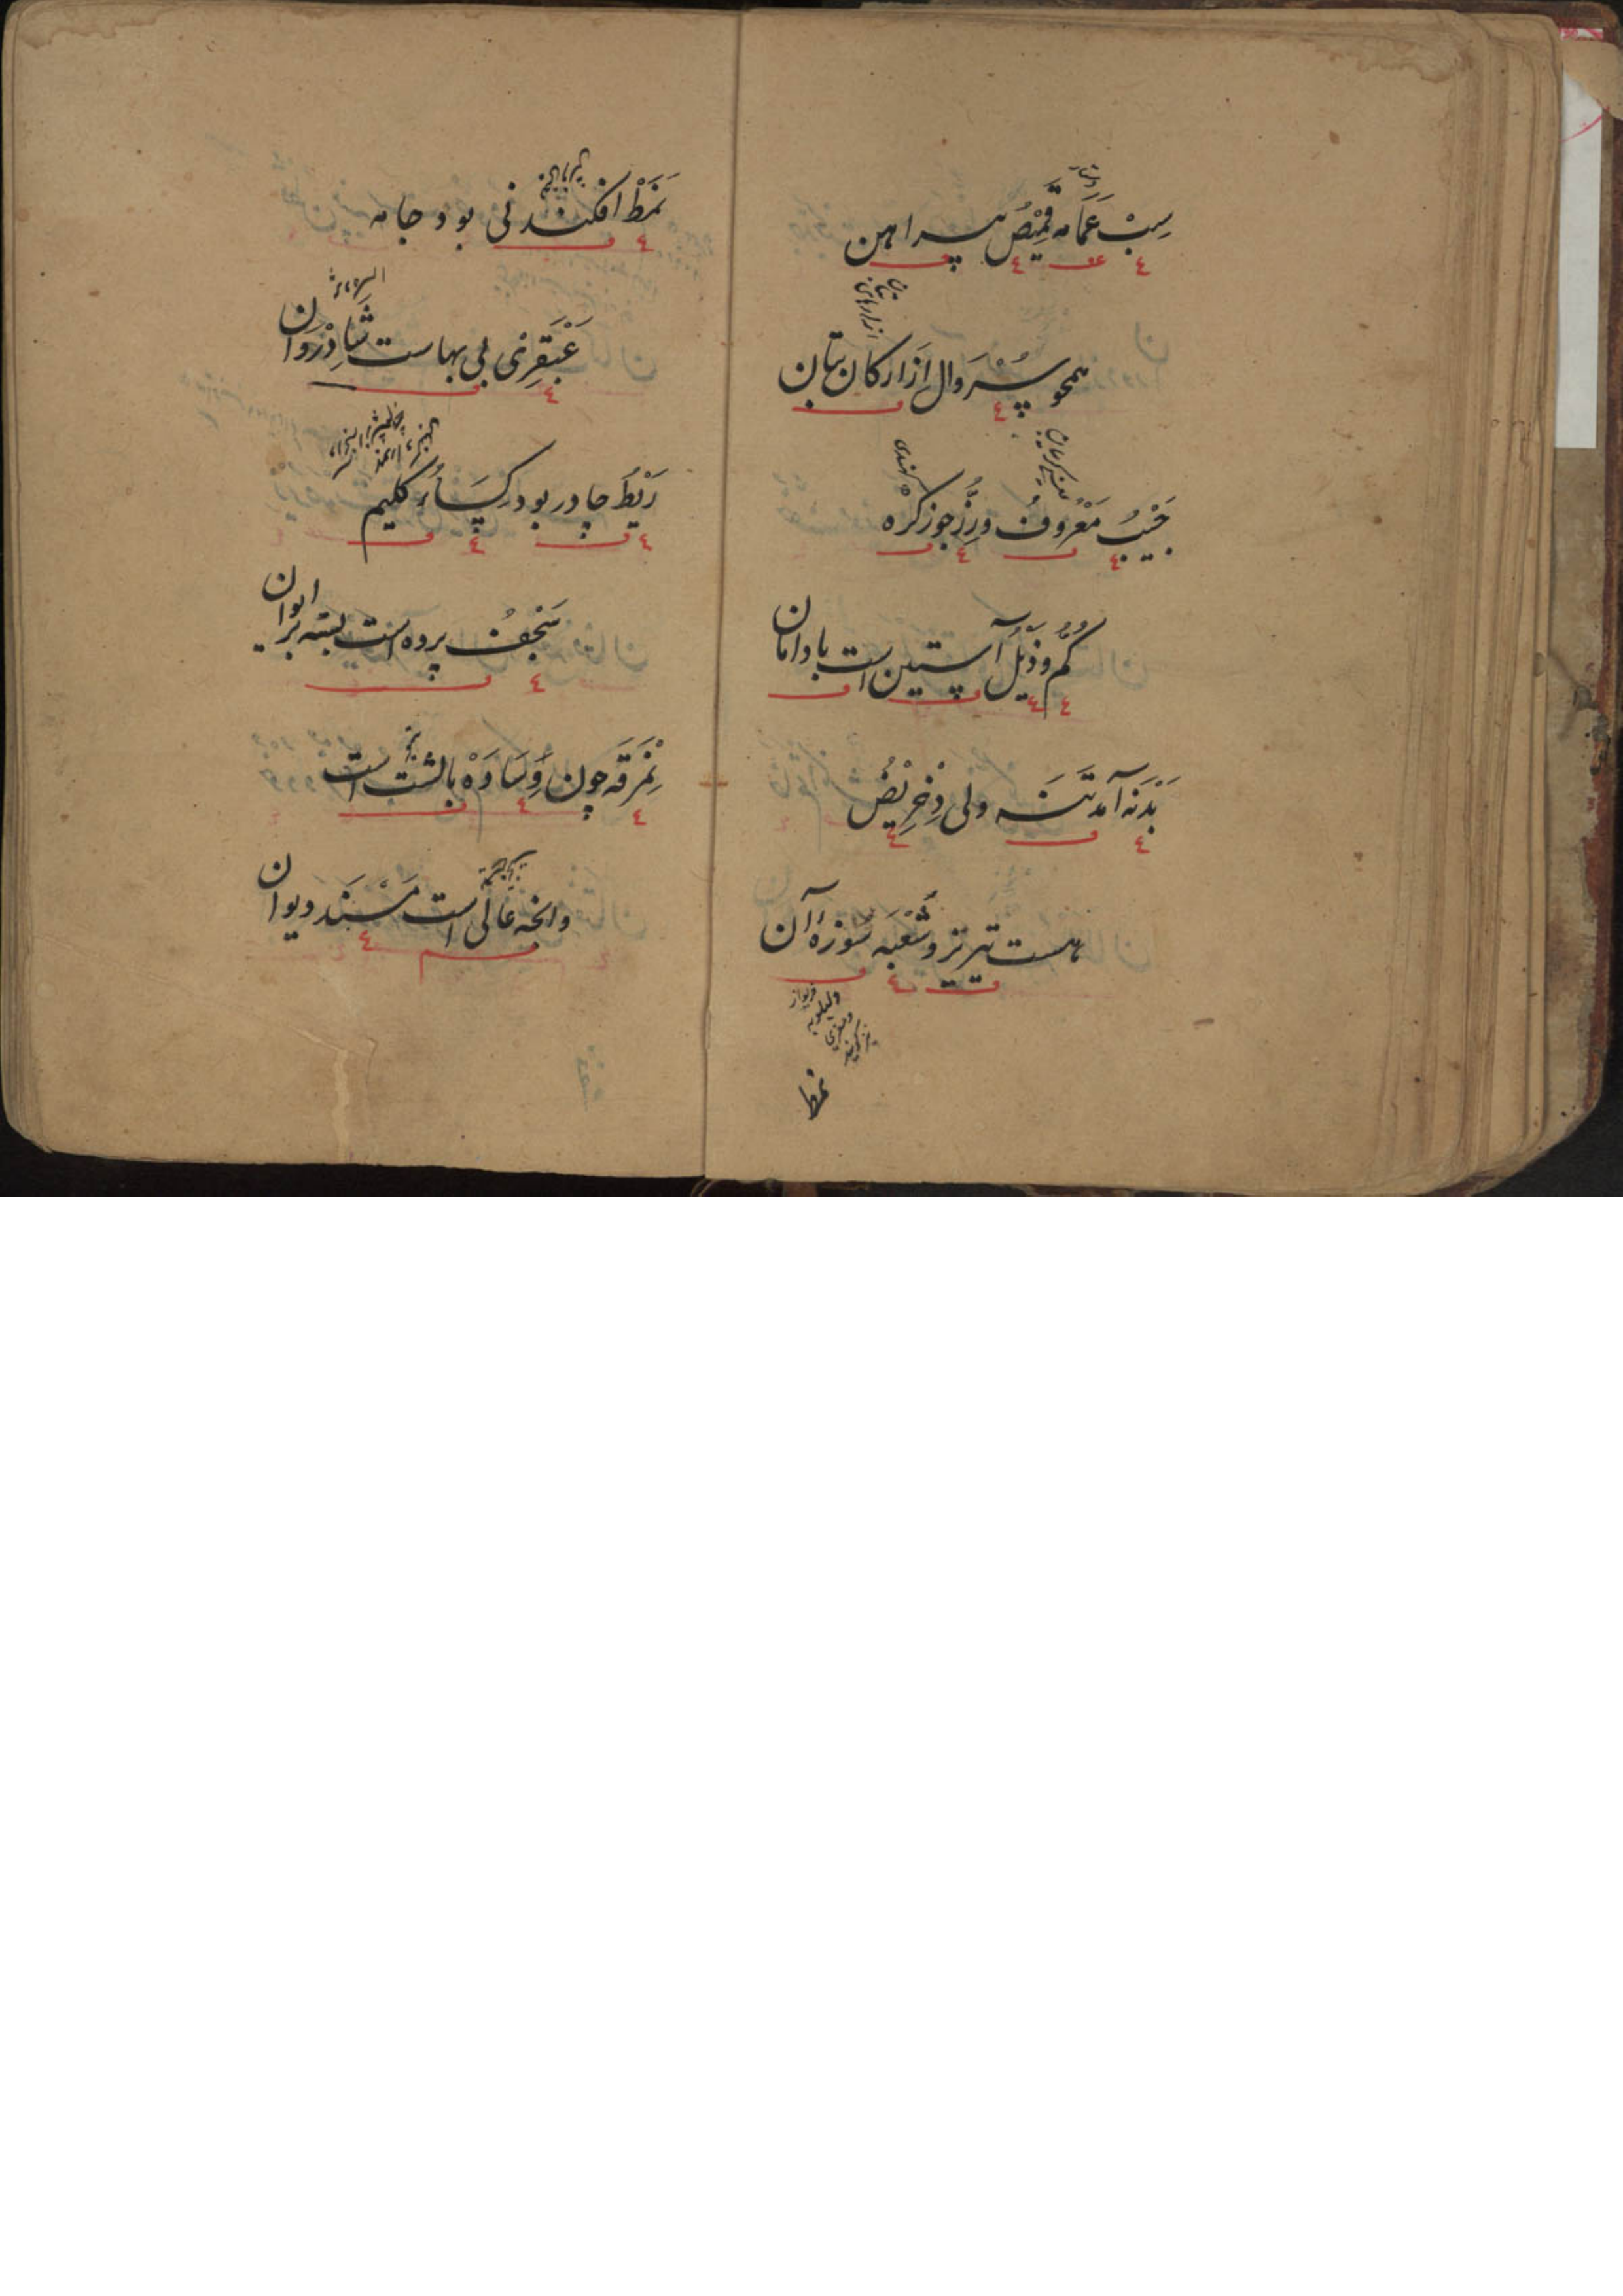 سِبْ عَمَامَه قَمِیْصُ پیراهن
همچو سُرْوَال اِزار کان تبان
جَیْبُ مَعْرُوفُ و زِرُّ جوز کره
کُمُّ و ذَیْلُ آستین است با دامان
بَدَنَه آمد تَنَه ولی دِخْرِیْصُ
هست تیریز و شُعْبَه سَوزهٔ آن
نمط
نَمَطْ افکندنی بود جامه
عَبْقَرِی بی بهاست شَادِرْوَان
رَیْطَ چادر بود کِسَاءُ کلیم
سَجْفُ پرده است بسته بر ایوان
نِمْرَقَه چون وِسَادَهْ بالشت است
وانچه عالی است مَسْنَد دیوان